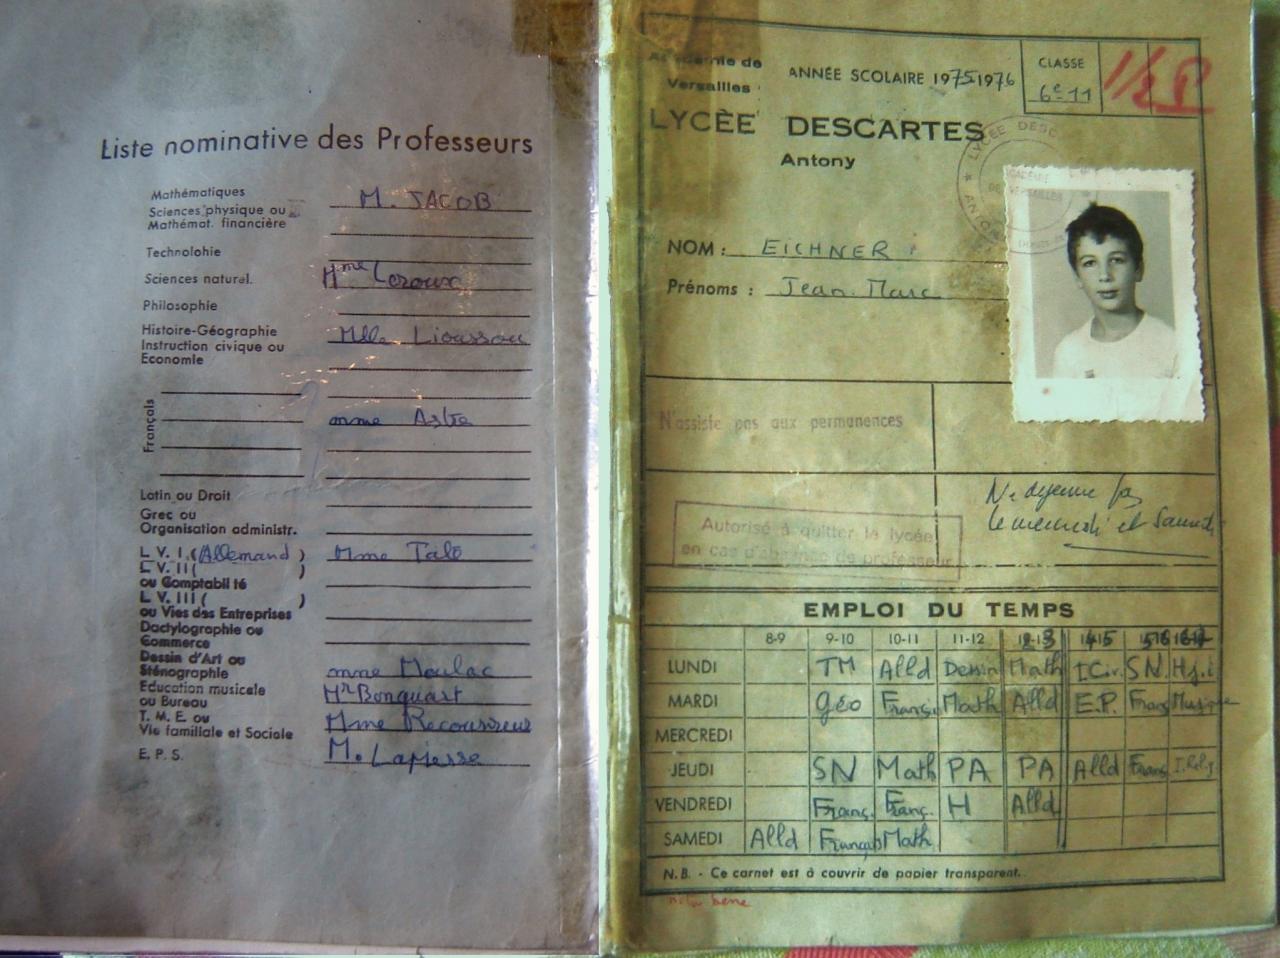 Liste nominative des Professeurs
Mathématiques M. JACOB
Sciences physique ou
Mathémat. financière
Technolohie
Sciences naturel. Mme Leroux
Philosophie
Histoire-Géographie Mlle Lioussou
Instruction civique ou
Economie
Français mme Astre
Latin ou Droit
Grec ou
Organisation administr.
L V. I (Allemand) Mme Talo
L V. II ( )
ou Comptabilité
L V. III ( )
ou Vies des Entreprises
Dactylographie ou
Commerce
Dessin d'Art ou
Sténographie mme Moulac
Education musicale Mr Bonquart
ou Bureau
T. M. E. ou Mme
Vie familiale et Sociale
E. P. S. M. Lapiesse
Académie de
Versailles
ANNÉE SCOLAIRE 1975 1976
CLASSE
6e 11
1/2 P
LYCÈE DESCARTES
Antony
NOM : EICHNER
Prénoms : Jean-Marc
N'assiste pas aux permanences
Ne déjeune pas
le mercredi et Samedi
Autorisé à quitter le lycée
en cas d'absence de professeur
EMPLOI DU TEMPS
8-9 9-10 10-11 11-12
LUNDI TM Alld Dessin Math I.Civ. SN
MARDI Géo Franç. Math Alld E.P. Franç Musique
MERCREDI
JEUDI SN Math PA PA Alld Franç
VENDREDI Franç. Franç. H Alld
SAMEDI Alld Français Math
N.B. - Ce carnet est à couvrir de papier transparent.
nota bene